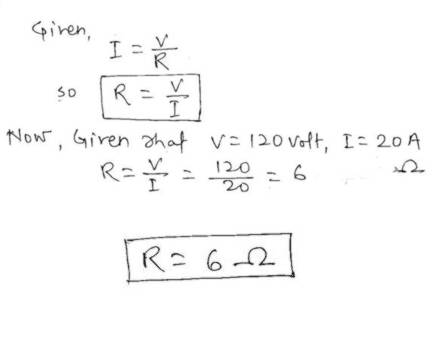 Given,
I = V/R
so R = V/I
Now, Given that V = 120 volt, I = 20 A
R = V/I = 120/20 = 6 Ω
R = 6 Ω